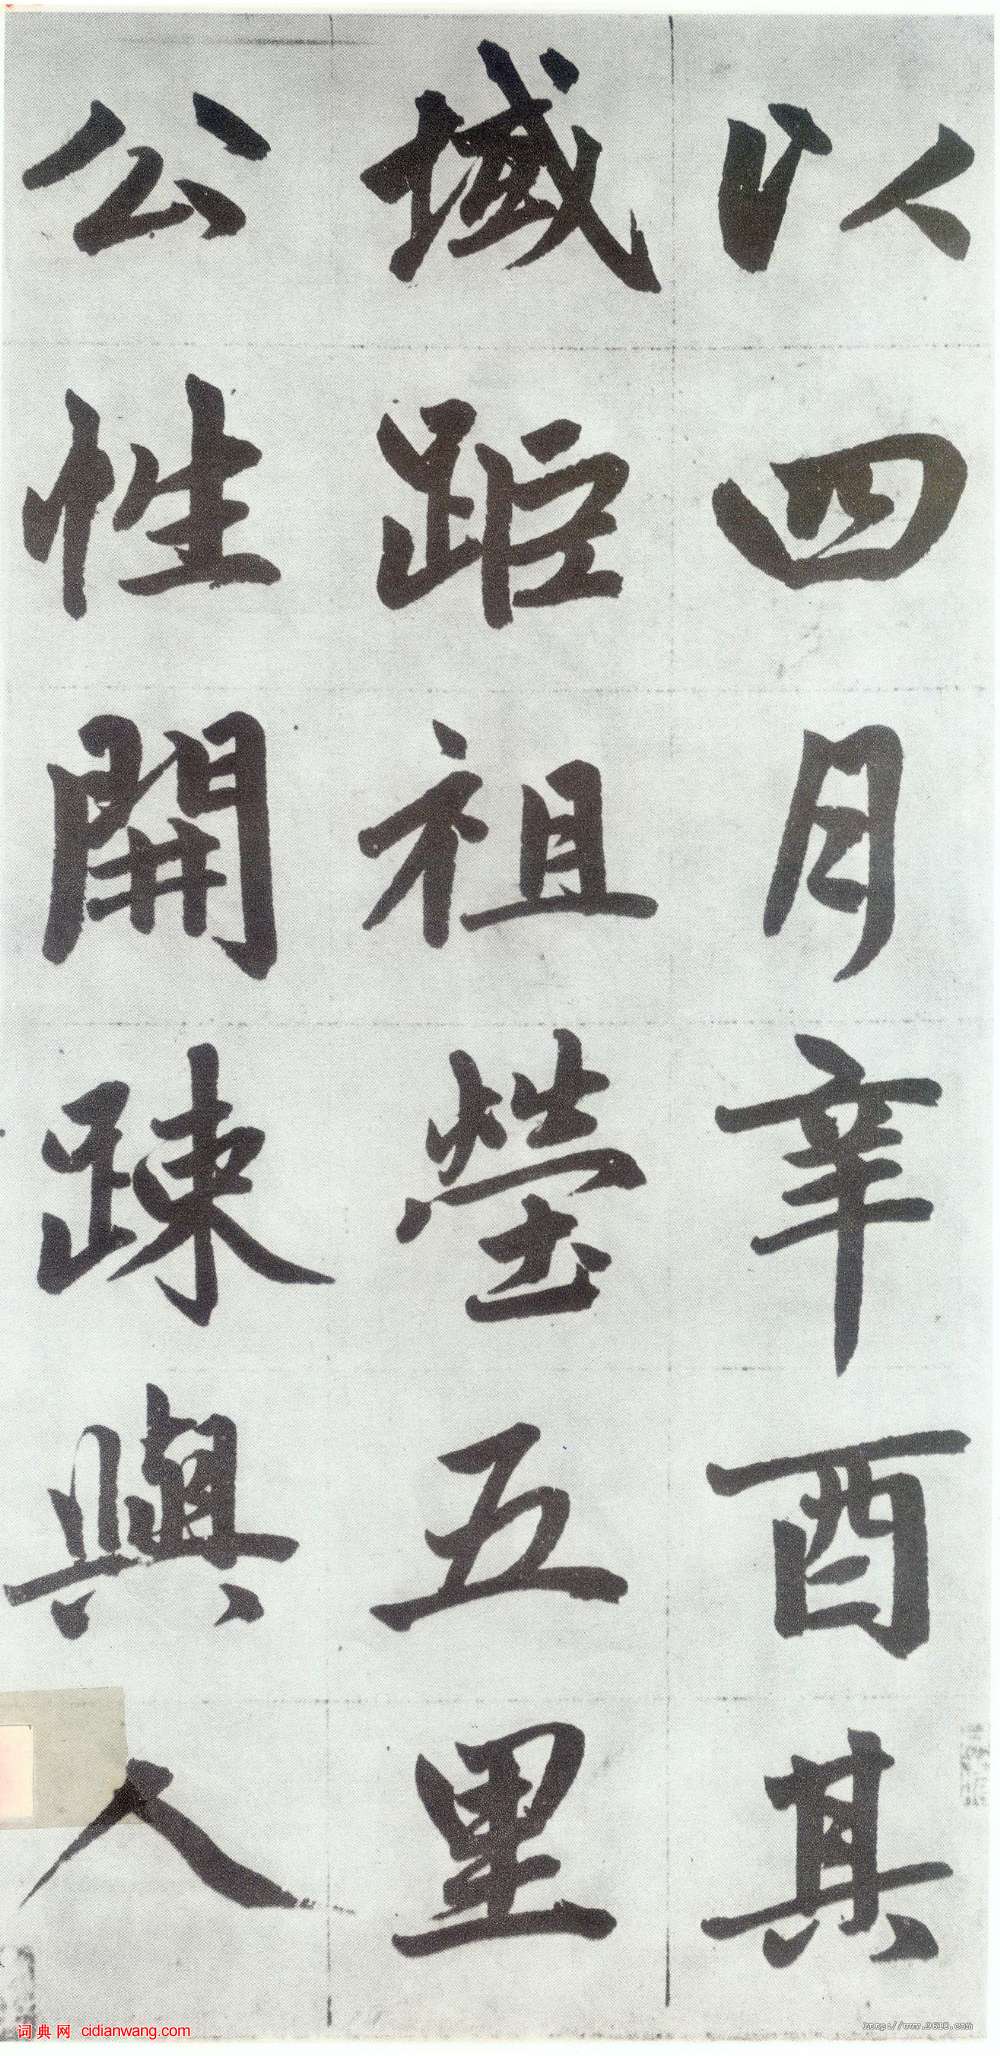 以四月辛酉其
域距祖塋五里
公性開踈與人
词典网 cidianwang.com
http://www.9610.com